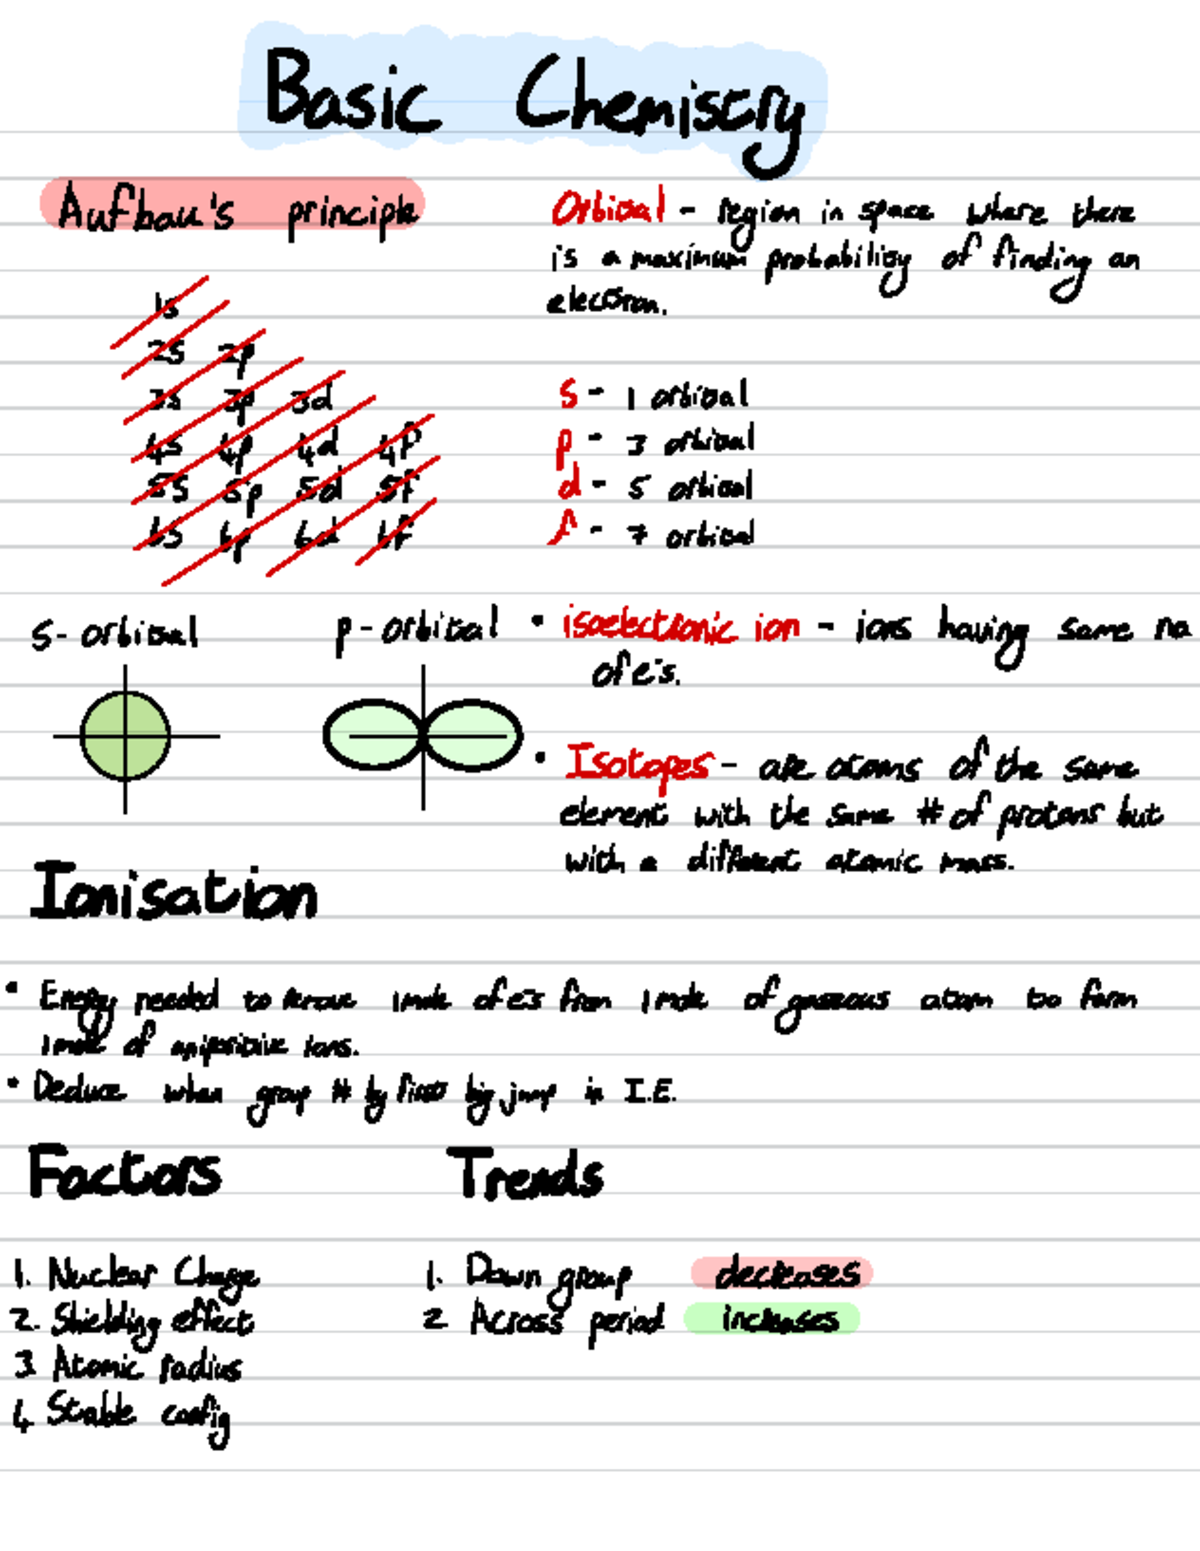 Basic Chemistry
Aufbau's principle
1s
2s 2p
3s 3p 3d
4s 4p 4d 4f
5s 5p 5d 5f
6s 6p 6d 6f
Orbital - region in space where there
is a maximum probability of finding an
electron.
s - 1 orbital
p - 3 orbital
d - 5 orbital
f - 7 orbital
s-orbital
p-orbital
• isoelectronic ion - ions having same no
of e's.
• Isotopes - are atoms of the same
element with the same # of protons but
with a different atomic mass.
Ionisation
• Energy needed to remove 1 mole of e's from 1 mole of gaseous atom to form
1 mole of unipositive ions.
• Deduce when group # by first big jump in I.E.
Factors
1. Nuclear Charge
2. Shielding effect
3 Atomic radius
4 Stable config
Trends
1. Down group decreases
2 Across period increases